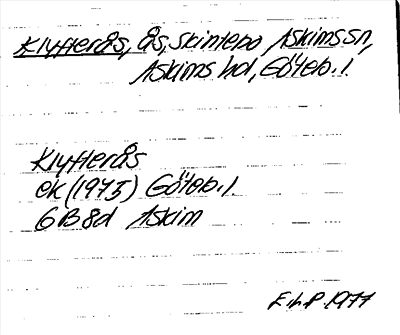 Klyfterås, ås, Skintebo Askims sn,
Askims hd, Göteb. l.
Klyfterås
ek (1975) Göteb. l.
6B8d Askim
E.h.P. 1977